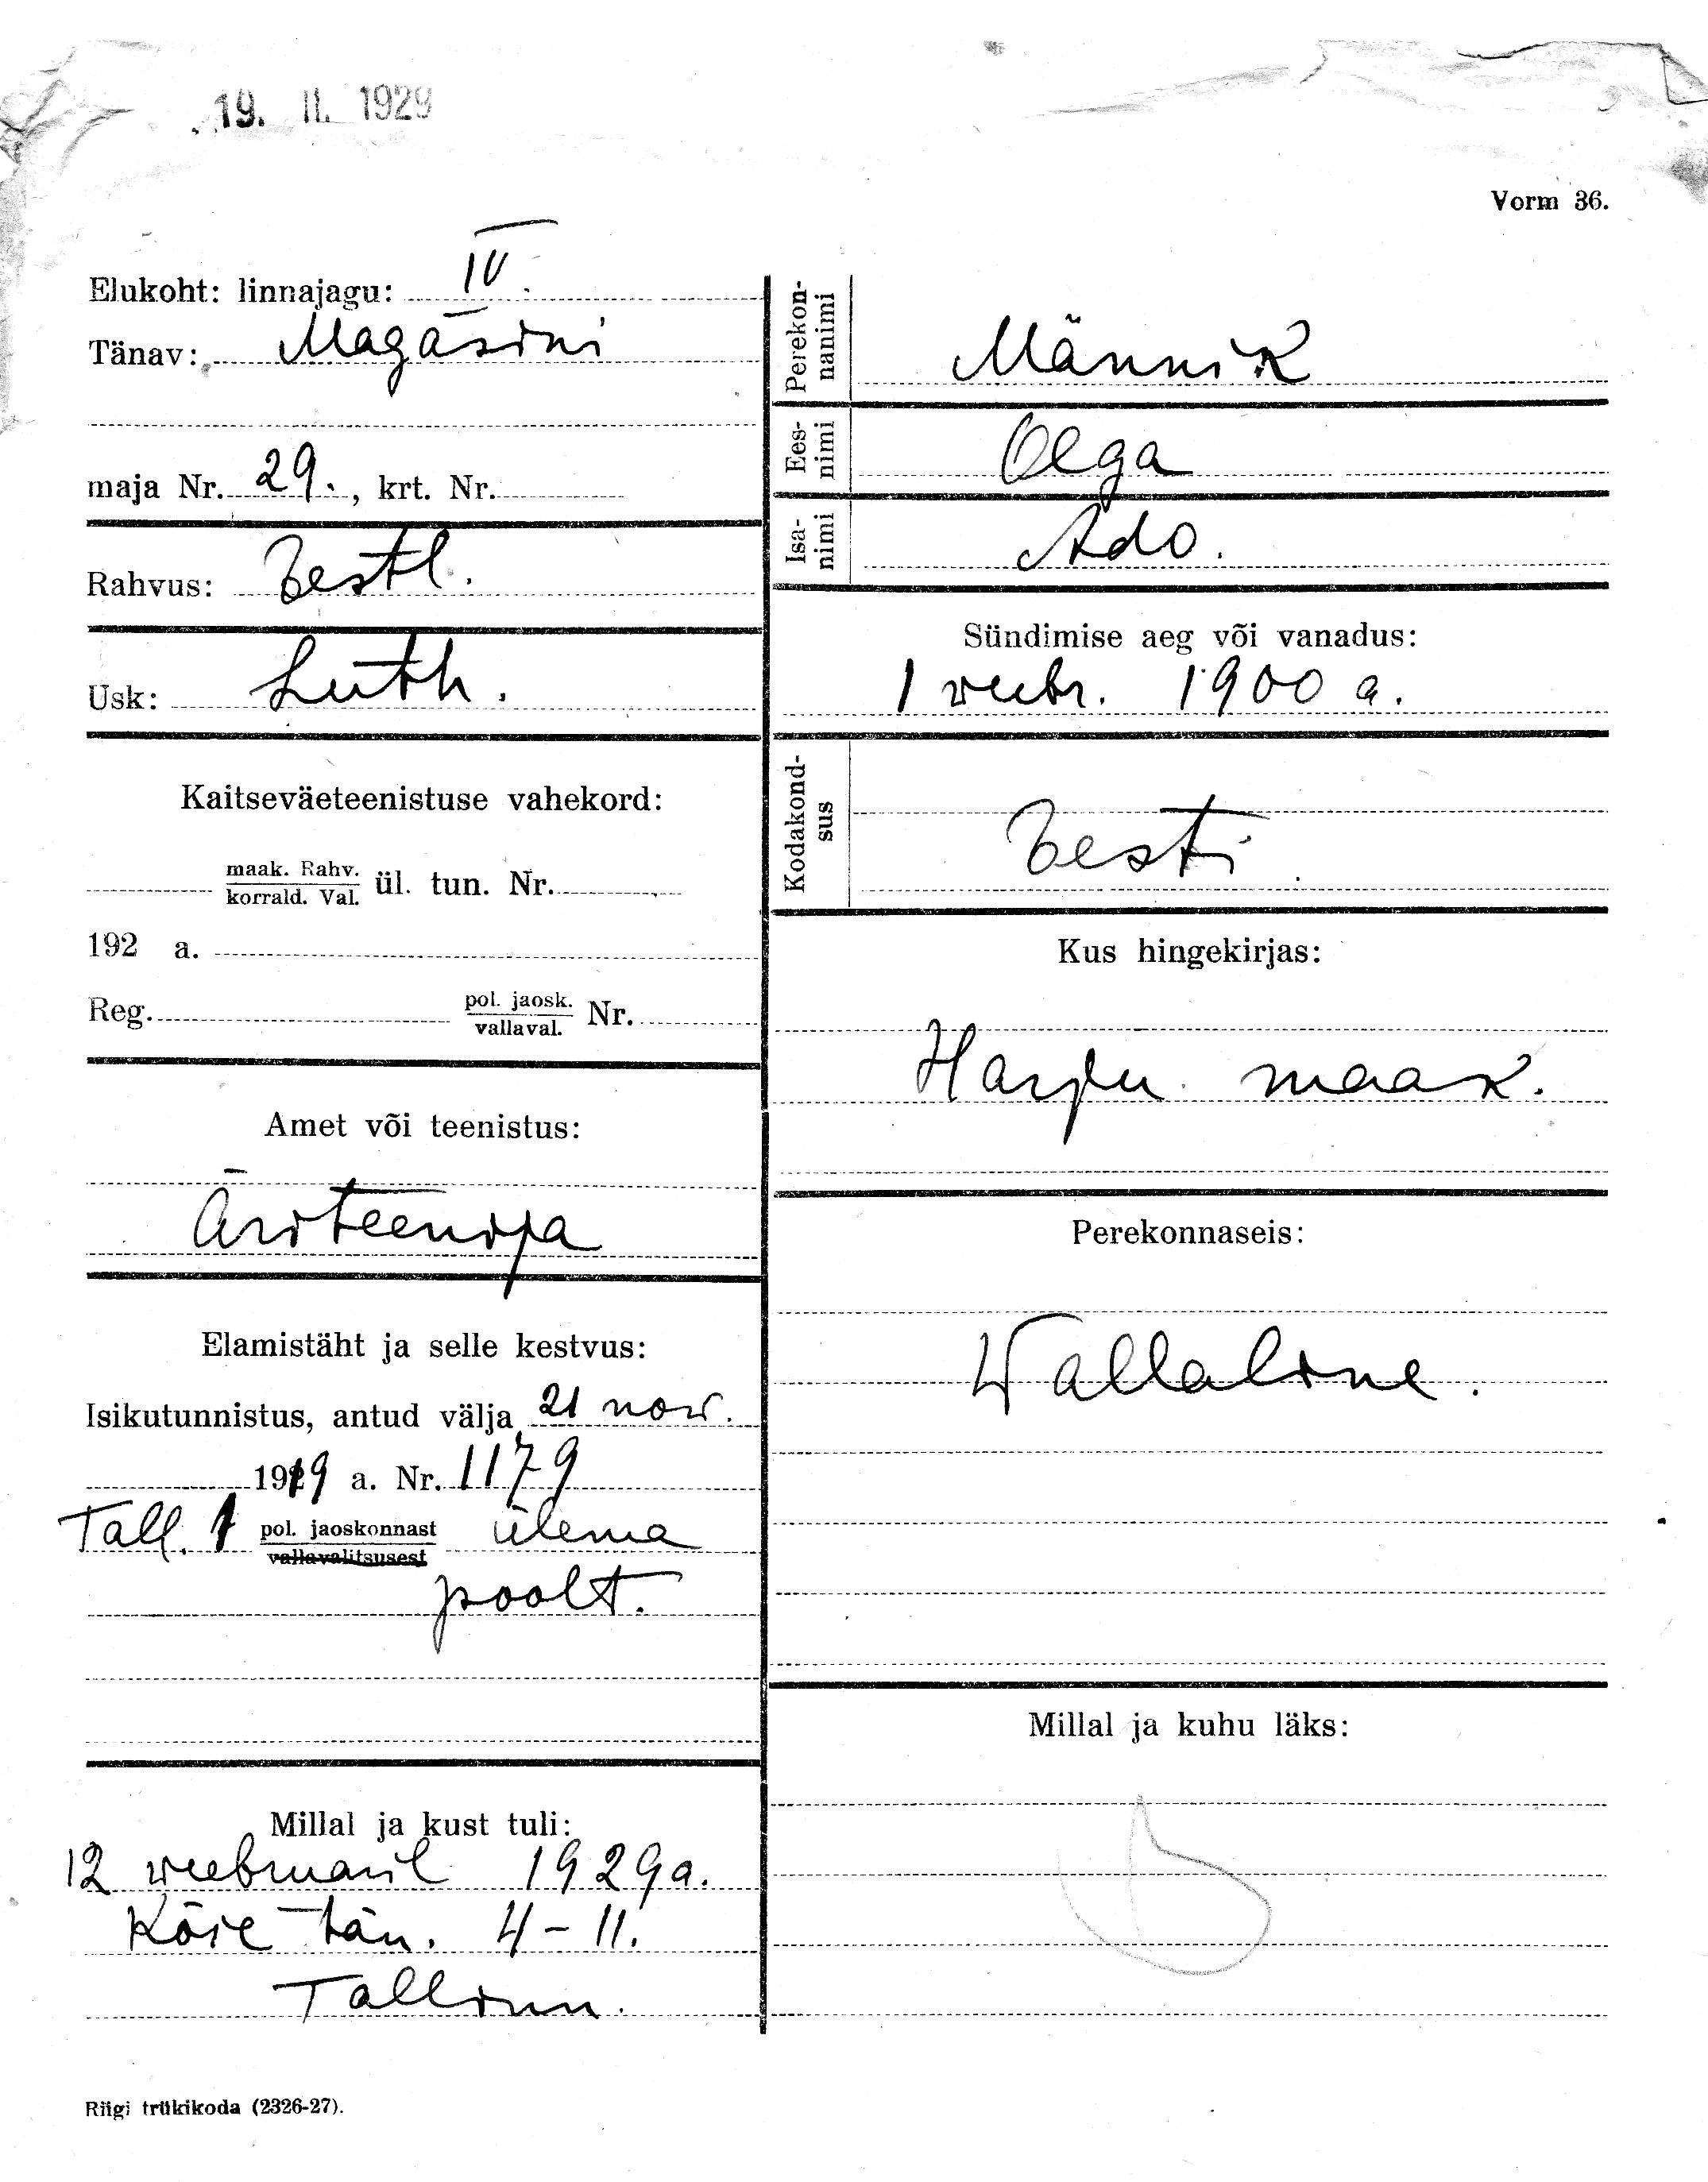 19. II. 1929
Vorm 36.
Elukoht: linnajagu: IV.
Tänav: Magasini
maja Nr. 29., krt. Nr.
Rahvus: Eestl.
Usk: Luth.
Kaitseväeteenistuse vahekord:
maak. Rahv.
korrald. Val. ül. tun. Nr.
192 a.
Reg. pol. jaosk.
vallaval. Nr.
Amet või teenistus:
Äriteenija
Elamistäht ja selle kestvus:
Isikutunnistus, antud välja 21 now.
1919 a. Nr. 1179
Tall. 1 pol. jaoskonnast ülema
vallavalitsusest
poolt.
Millal ja kust tuli:
12 veebruaril 1929 a.
Kõie tän. 4-11.
Tallinn.
Perekon-
nanimi Männik
Ees-
nimi Olga
Isa-
nimi Ado.
Sündimise aeg või vanadus:
1 veebr. 1900 a.
Kodakond-
sus Eesti
Kus hingekirjas:
Harju maak.
Perekonnaseis:
Wallaline.
Millal ja kuhu läks:
Riigi trükikoda (2326-27).